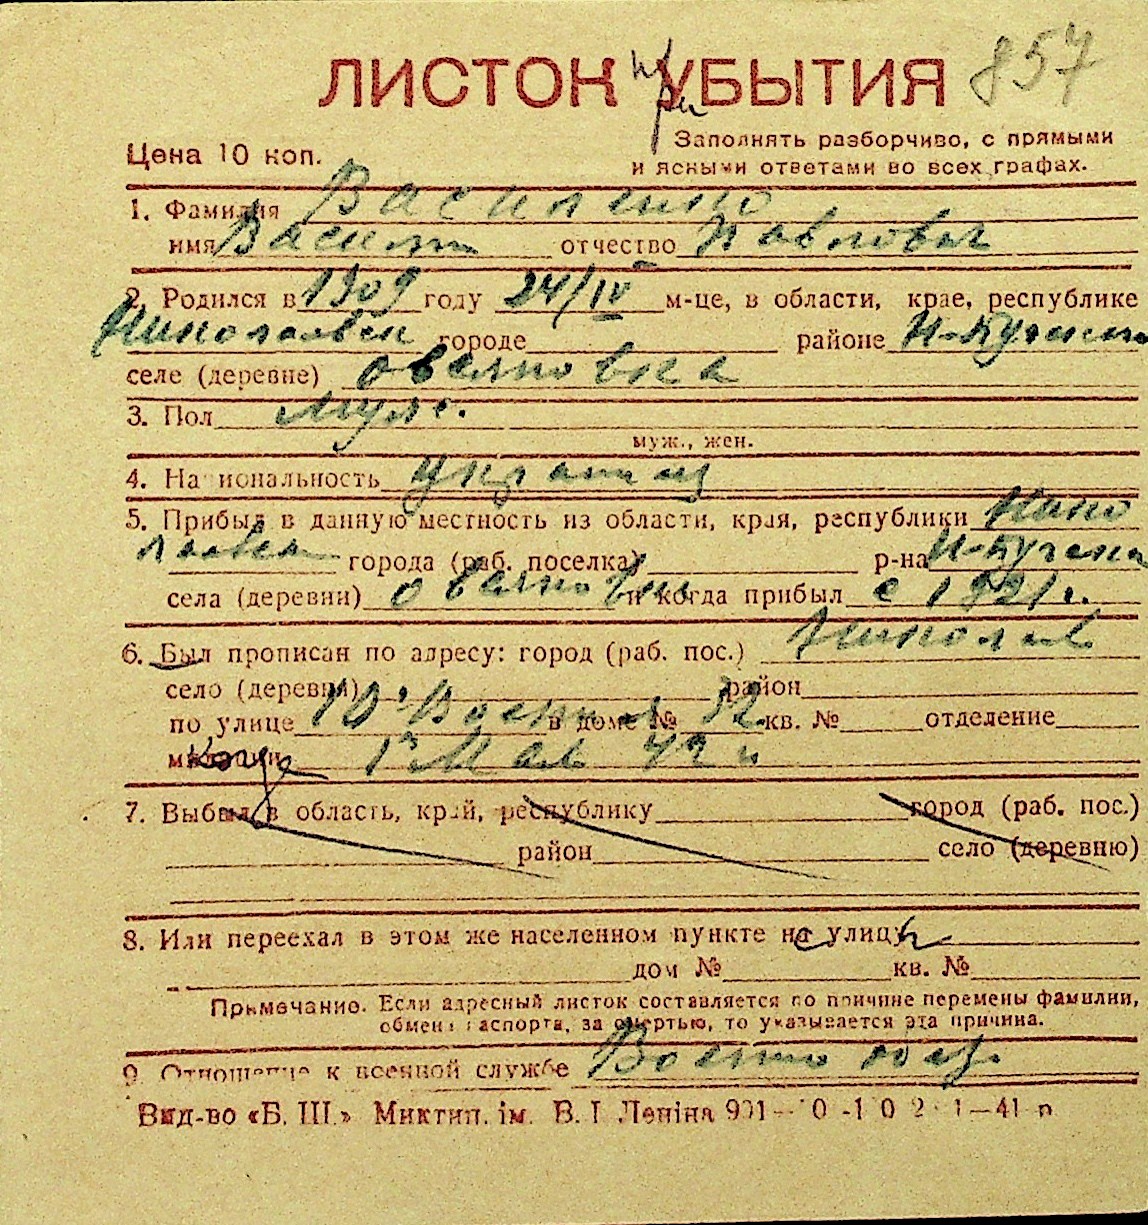 ЛИСТОК УБЫТИЯ 857
при
Цена 10 коп.
Заполнять разборчиво, с прямыми
и ясными ответами во всех графах.
1. Фамилия Василенко
имя Василий отчество Павлович
2. Родился в 1909 году 24/IV м-це, в области, крае, республике
Николаевск городе районе
селе (деревне)
3. Пол муж.
муж., жен.
4. Национальность украинец
5. Прибыл в данную местность из области, края, республики Нико
лаевск города (раб. поселка) р-на
села (деревни) и когда прибыл с 1921 г.
6. Был прописан по адресу: город (раб. пос.) Николаев
село (деревня) район
по улице 10 Военная в доме № 32 кв. № отделение
милиции 1 Мая 42 г.
7. Выбыл в область, край, республику город (раб. пос.)
район село (деревню)
8. Или переехал в этом же населенном пункте на улицу
дом № кв. №
Примечание. Если адресный листок составляется по причине перемены фамилии,
обмена паспорта, за смертью, то указывается эта причина.
9. Отношение к военной службе Военно обяз.
Вид-во «Б. Ш.» Миктип. ім. В. І Леніна